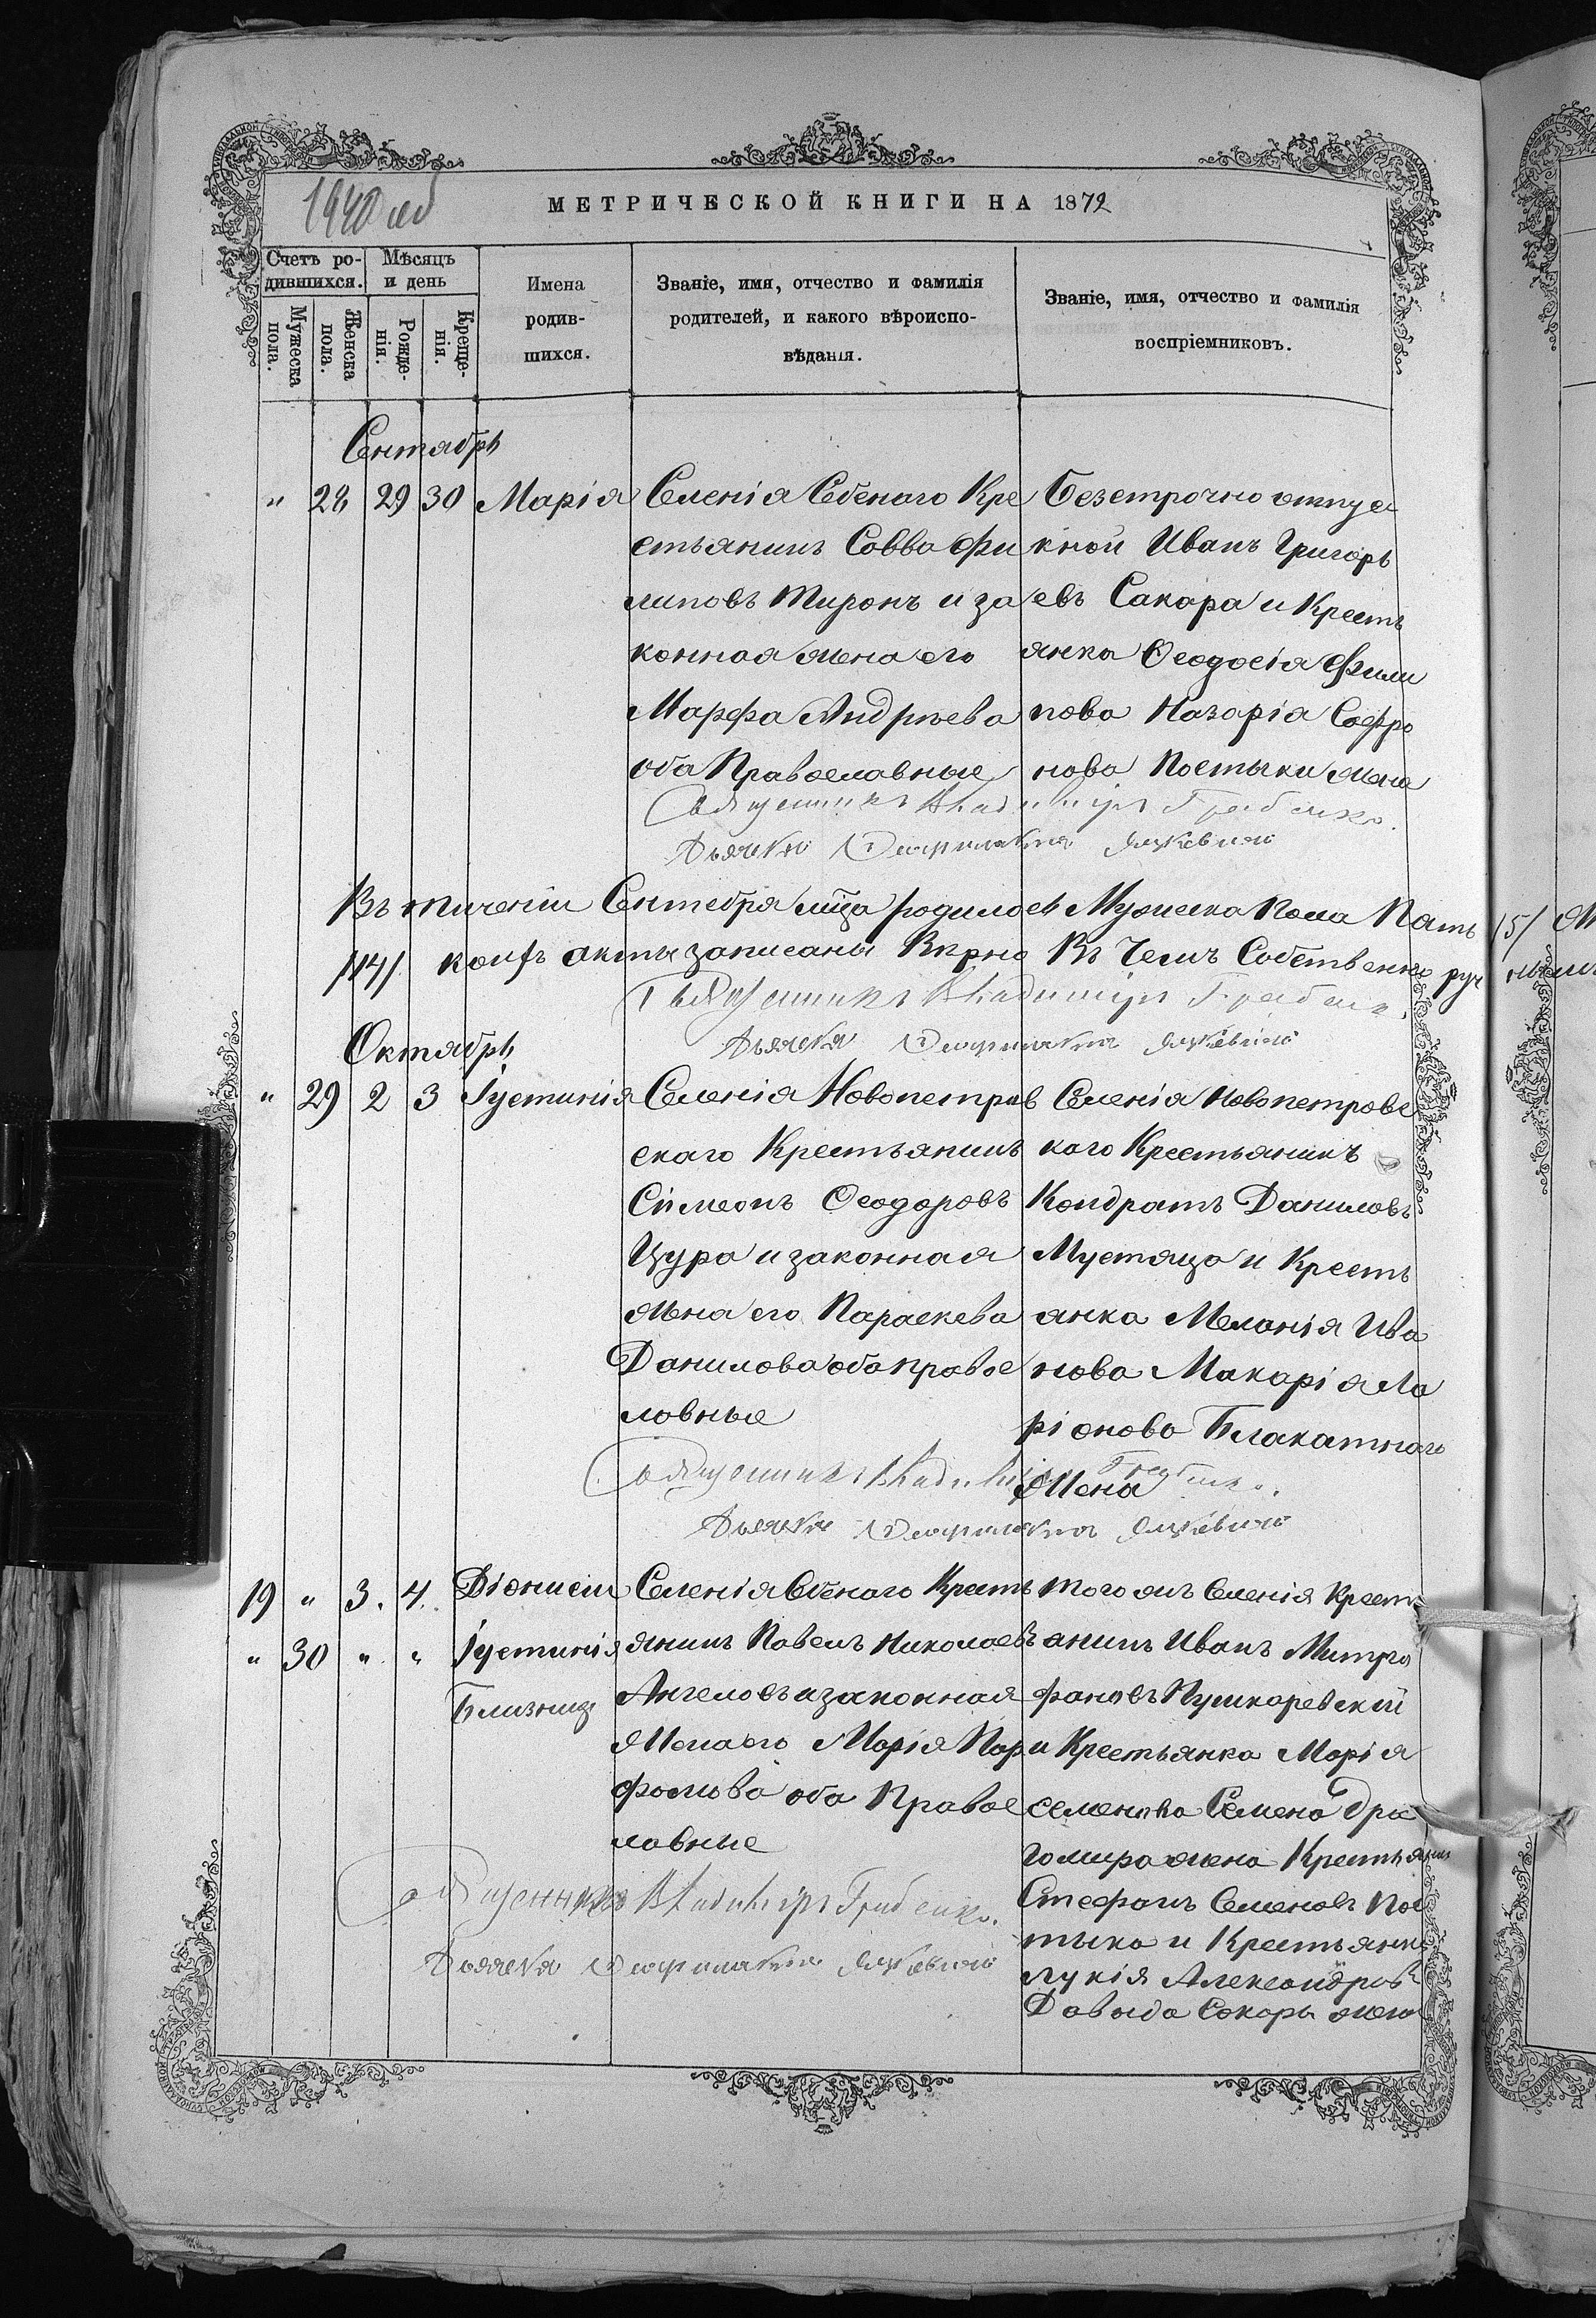 1940 об
МЕТРИЧЕСКОЙ КНИГИ НА 1872
Счетъ ро-
дившихся.
Мужеска
пола.
Женска
пола.
Мѣсяцъ
и день
Рожде-
нія.
Креще-
нія.
Имена
родив-
шихся.
Званіе, имя, отчество и фамилія
родителей, и какого вѣроиспо-
вѣданія.
Званіе, имя, отчество и фамилія
воспріемниковъ.
Сентябрь
" 28 29 30 Марія
Селенія Сбенаго Кре
стьянинъ Савва Фи
липовъ Тиронъ и за
конная жена его
Марфа Андрѣева
оба Православные
Безсрочно отпус
кной Иванъ Григорь
евъ Сакара и Кресть
янка Ѳеодосія Фили
пова Назарія Софро
нова Постыки жена
Священникъ Владиміръ Грабенко.
Дьячекъ
Въ тиченіи Сентебря мца родилось Мужеска Пола Пять /5/
/14/ коихъ акты записаны Вѣрно Въ Чемъ Собственно руч
Священникъ Владиміръ Грабенко.
Дьячекъ
Октябрь
" 29 2 3 Іустинія
Селенія Новопетров
скаго Крестьянинъ
Симеонъ Ѳеодоровъ
Цура и законная
жена его Параскева
Данилова оба правос
лавные
Селенія Новопетровс
каго Крестьянинъ
Кондратъ Даниловъ
Мустяца и Кресть
янка Меланія Ива
нова Макарія Ла
ріонова Блакатнаго
жена
Священникъ Владиміръ Грабенко.
Дьячекъ
19 " 3. 4. Діонисій
" 30 " " Іустинія
Близнец
Селенія Сбенаго Кресть
янинъ Павелъ Николаевъ
Ангеловъ и законная
жена его Марія Пар
фомова оба Правос
лавные
того жъ Селенія Кресть
янинъ Иванъ Митро
фановъ Пушкаревскій
и Крестьянка Марія
Семенова Семена Дра
гомира жена Крестьянин
Стефанъ Семеновъ Пос
тыка и Крестьянка
Лукія Александров
Давыда Сокоры жена
Священникъ Владиміръ Грабенко.
Дьячекъ